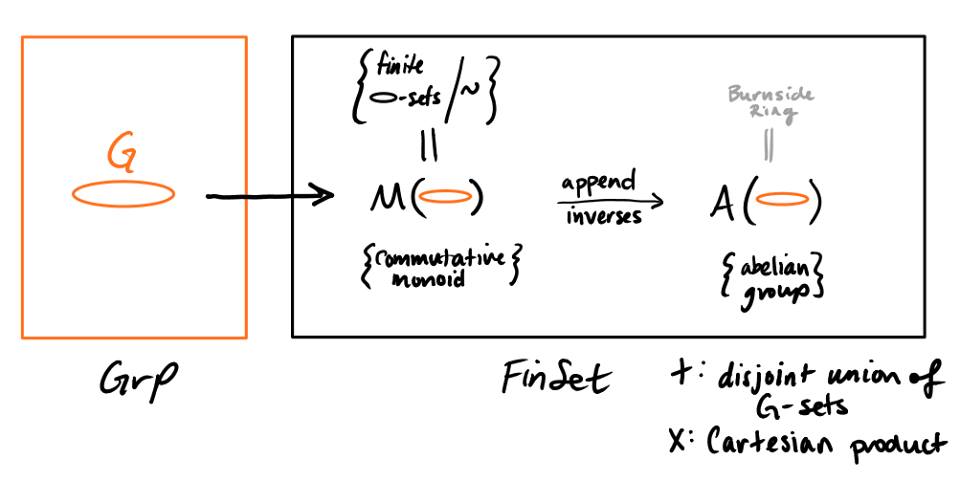 G
{finite
-sets/~}
||
M( )
{commutative
monoid}
append
inverses
Burnside
Ring
||
A( )
{abelian
group}
Grp
FinSet
+: disjoint union of
G-sets
X: Cartesian product